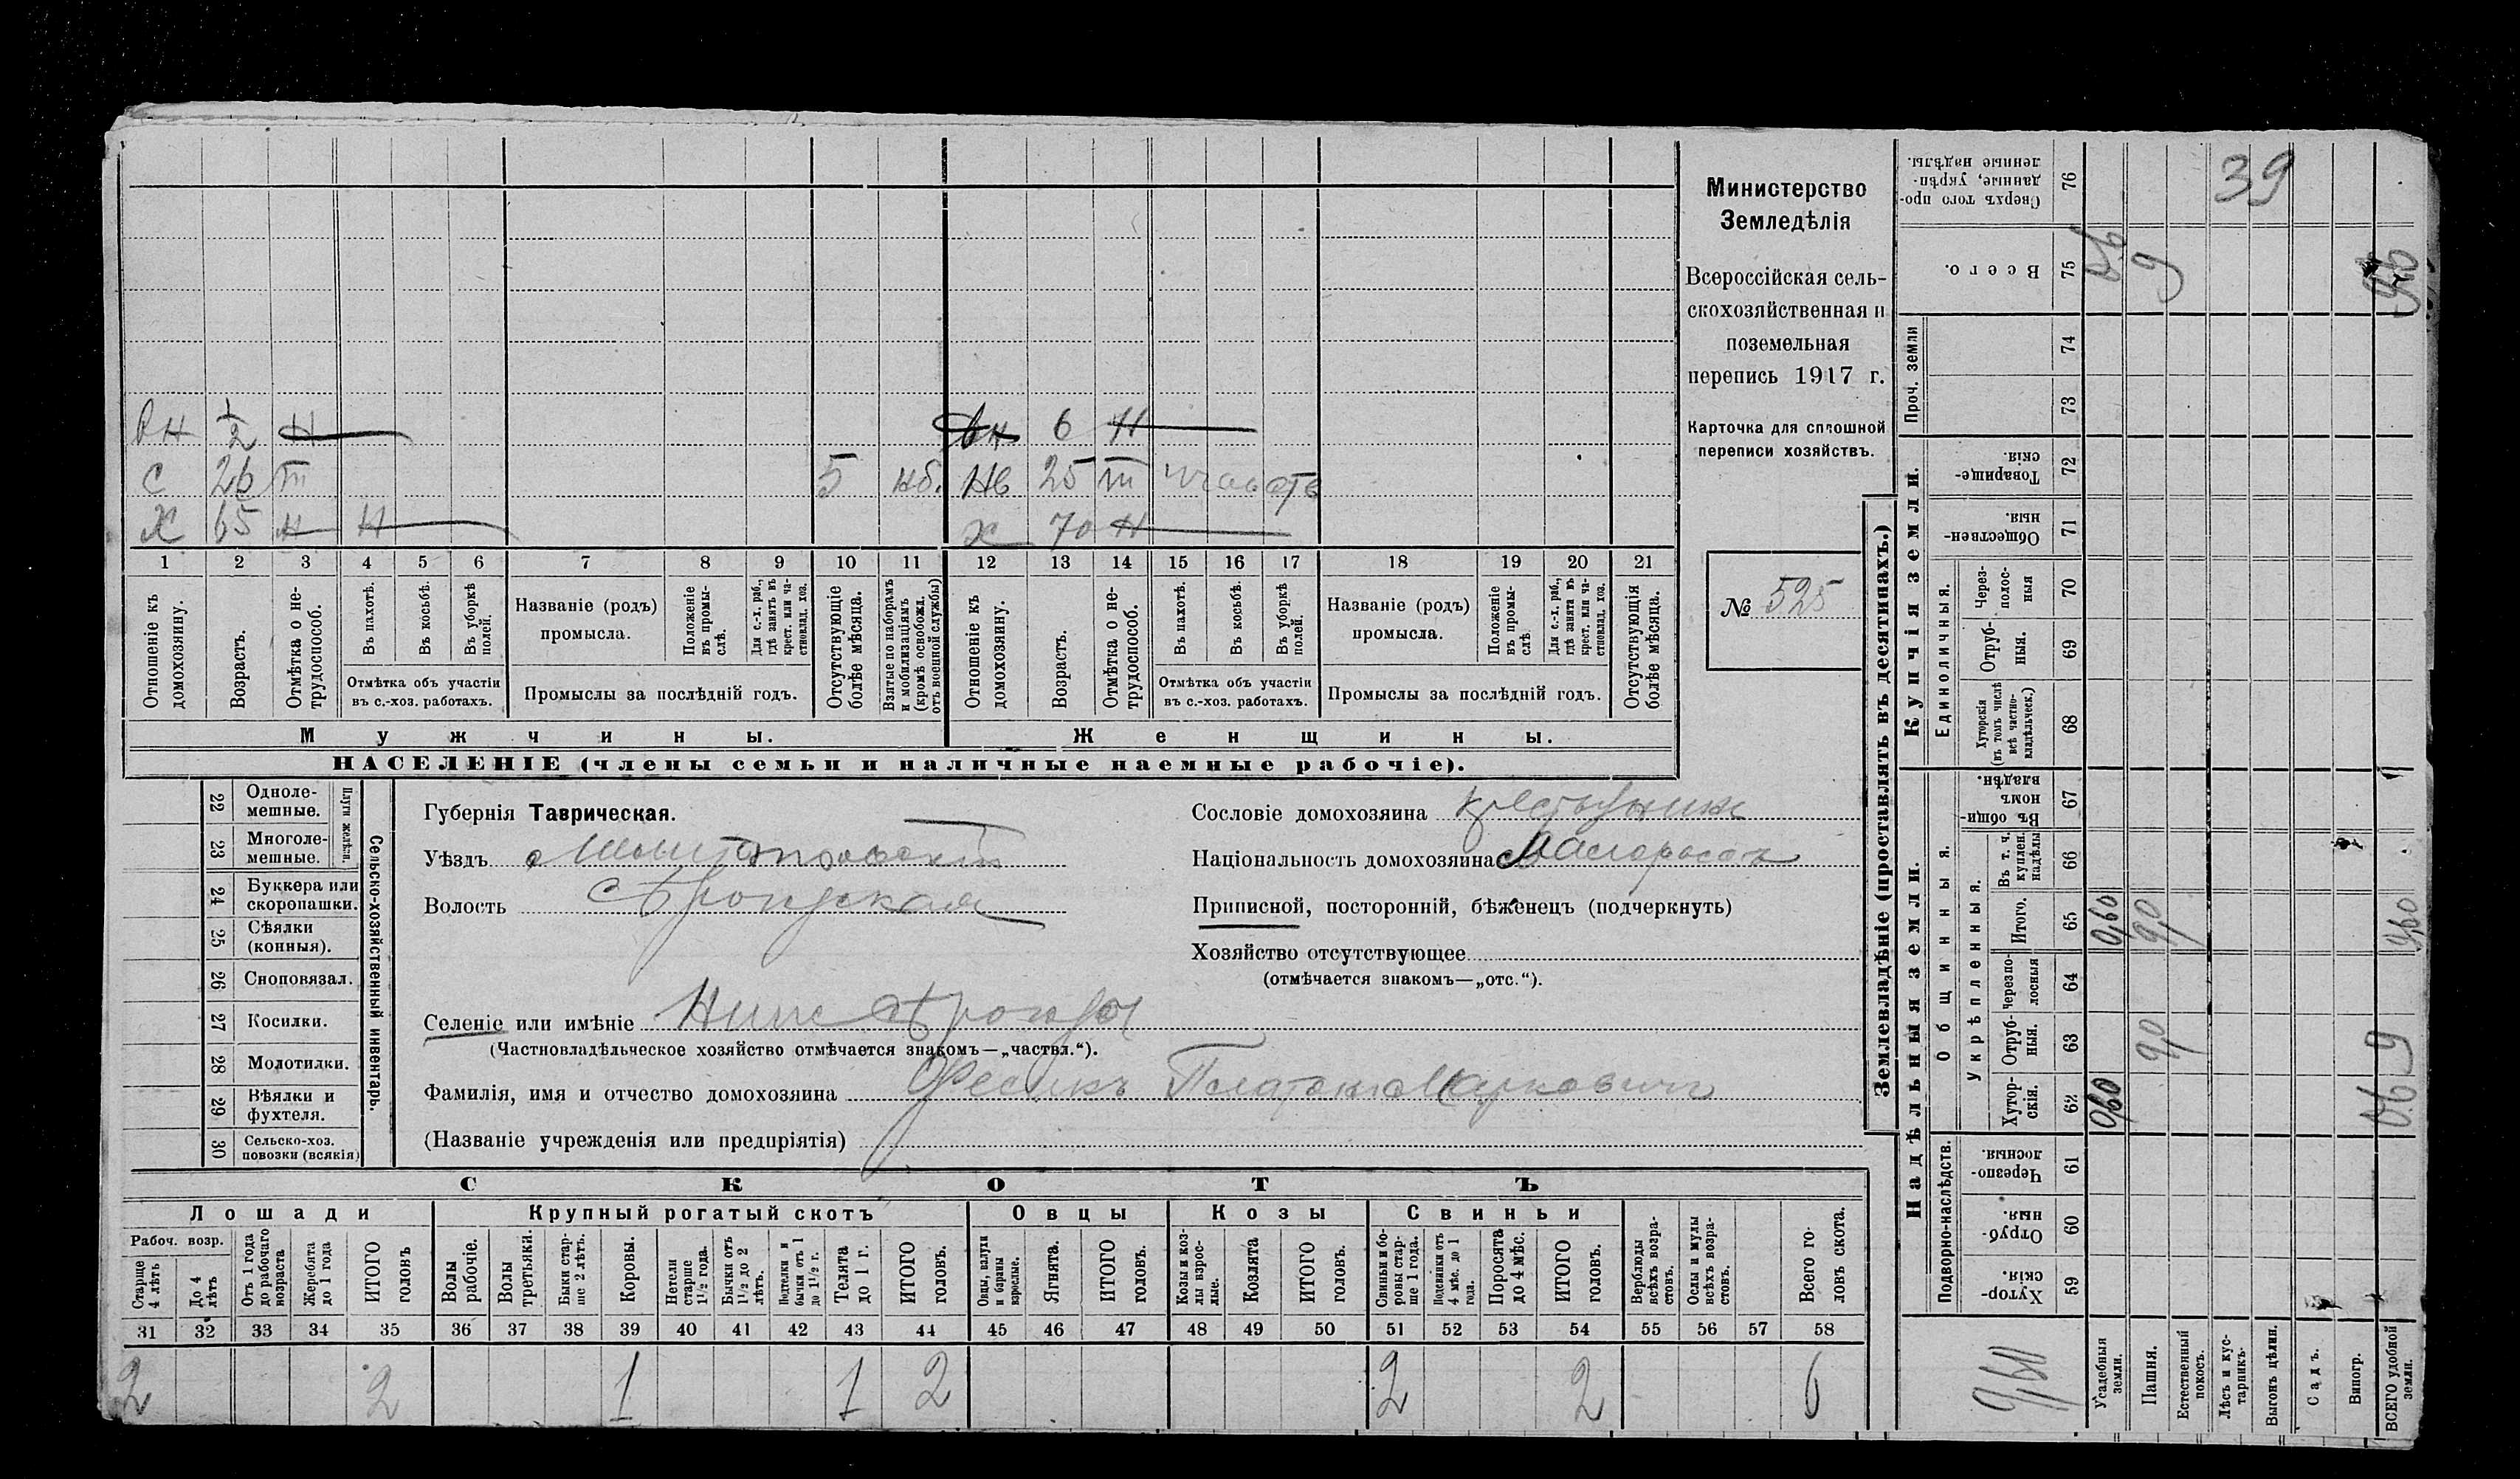 Министерство
Земледѣлія
Всероссійская сель-
скохозяйственная и
поземельная
перепись 1917 г.
Карточка для сплошной
переписи хозяйствъ.
№ 525
вн 1/2 н вн 6 н
с 26 5 нб. нв 25
х 65 н н х 70 н
1 2 3 4 5 6 7 8 9 10 11 12 13 14 15 16 17 18 19 20 21
Отношеніе къ домохозяину.
Возрастъ.
Отмѣтка о не-трудоспособ.
Въ пахотѣ.
Въ косьбѣ.
Въ уборкѣ полей.
Отмѣтка объ участіи
въ с.-хоз. работахъ.
Названіе (родъ)
промысла.
Положеніе въ промы-слѣ.
Для с.-х. раб., гдѣ занятъ въ крест. или ча-стновлад. хоз.
Промыслы за послѣдній годъ.
Отсутствующіе болѣе мѣсяца.
Взятые по наборамъ и мобилизаціямъ (кромѣ освобожд. отъ военной службы)
Отношеніе къ домохозяину.
Возрастъ.
Отмѣтка о не-трудоспособ.
Въ пахотѣ.
Въ косьбѣ.
Въ уборкѣ полей.
Отмѣтка объ участіи
въ с.-хоз. работахъ.
Названіе (родъ)
промысла.
Положеніе въ промы-слѣ.
Для с.-х. раб., гдѣ занята въ крест. или ча-стновлад. хоз.
Промыслы за послѣдній годъ.
Отсутствующія болѣе мѣсяца.
Мужчины.
Женщины.
НАСЕЛЕНІЕ (члены семьи и наличные наемные рабочіе).
22 Одноле-мешные.
23 Многоле-мешные.
Плуги желѣзн.
24 Буккера или скоропашки.
25 Сѣялки (конныя).
26 Сноповязал.
27 Косилки.
28 Молотилки.
29 Вѣялки и фухтеля.
30 Сельско-хоз. повозки (всякія)
Сельско-хозяйственный инвентарь.
Губернія Таврическая.
Уѣздъ Мелитопольскій
Волость
Селеніе или имѣніе
(Частновладѣльческое хозяйство отмѣчается знакомъ—„частвл.“).
Фамилія, имя и отчество домохозяина Фесикъ Платонъ Марковичъ
(Названіе учрежденія или предпріятія)
Сословіе домохозяина крестьянинъ
Національность домохозяина Малороссъ
Приписной, посторонній, бѣженецъ (подчеркнуть)
Хозяйство отсутствующее
(отмѣчается знакомъ—„отс.“).
СКОТЪ
Лошади
Крупный рогатый скотъ
Овцы
Козы
Свиньи
Рабоч. возр.
Старше 4 лѣтъ
До 4 лѣтъ
Отъ 1 года до рабочаго возраста
Жеребята до 1 года
ИТОГО головъ
Волы рабочіе.
Волы третьяки.
Быки стар-ше 2 лѣтъ.
Коровы.
Нетели старше 1½ года.
Бычки отъ 1½ до 2 лѣтъ.
Подтелки и бычки отъ 1 до 1½ г.
Телята до 1 г.
ИТОГО головъ.
Овцы, валухи и бараны взрослые.
Ягнята.
ИТОГО головъ.
Козы и коз-лы взрос-лые.
Козлята
ИТОГО головъ.
Свиньи и бо-ровы стар-ше 1 года.
Подсвинки отъ 4 мѣс. до 1 года.
Поросята до 4 мѣс.
ИТОГО головъ.
Верблюды всѣхъ возра-стовъ.
Ослы и мулы всѣхъ возра-стовъ.
Всего го-ловъ скота.
31 32 33 34 35 36 37 38 39 40 41 42 43 44 45 46 47 48 49 50 51 52 53 54 55 56 57 58
2 2 1 1 2 2 2 6
Землевладѣніе (проставлять въ десятинахъ.)
Купчія земли.
Надѣльныя земли.
Сверхъ того про-данные, укрѣп-ленные надѣлы. 76 39
Всего. 75 0,6 9 9,6
Проч. земли
74
73
Товарище-скія. 72
Обществен-ныя. 71
Единоличныя.
Через-полос-ныя 70
Отруб-ныя. 69
Хуторскія (въ томъ числѣ всѣ частно-владѣльческ.) 68
Общинныя.
Въ общи-номъ владѣн. 67
Укрѣпленныя.
Въ т. ч. куплен. надѣлы 66
Итого. 65 0,60 9,0 9,60
Черезпо-лосныя 64
Отруб-ныя. 63 9,0 9
Хутор-скія. 62 0,60 0,6
Подворно-наслѣдств.
Черезпо-лосныя. 61
Отруб-ныя. 60
Хутор-скія. 59
Усадебныя земли.
Пашня.
Естественный покосъ.
Лѣсъ и кус-тарникъ.
Выгонъ цѣлин.
Садъ.
Виногр.
ВСЕГО удобной земли.